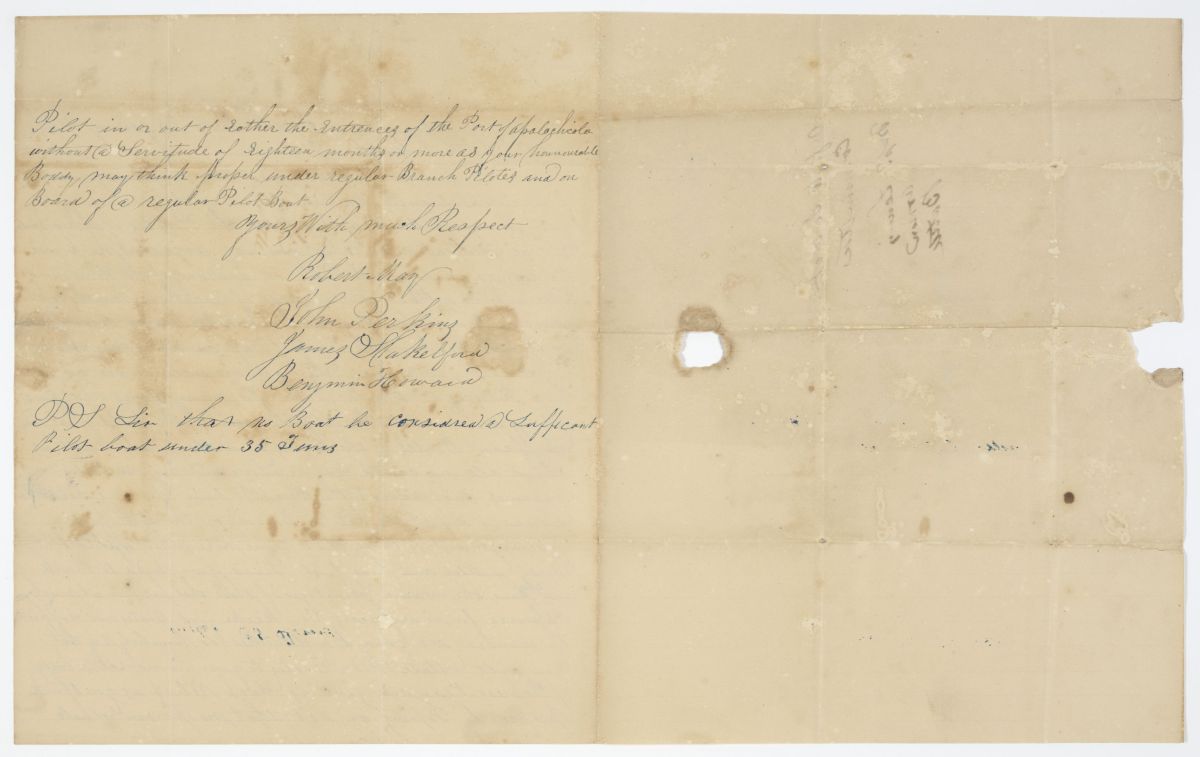 Pilot in or out of Eather the Entrences of the Port of apalachicola
without a Servitude of Eighteen months or more as your honnourable
Boddy may think proper under regular Branch Pilotes and on
Board of a regular Pilot Boat
Yours With much Respect
Robert May
John Perkins
James Shakelford
Benjmin Howard
P S Sir that no Boat be considred a Suffcant
Pilot boat under 35 Tuns